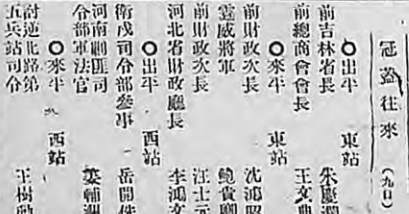 冠蓋往來 (九日)
○出平 東站
前吉林省長 朱慶瀾
前總商會會長 王文典
○來平 東站
前財政次長 沈鴻昭
靈威將軍 鮑貴卿
前財政次長 汪士元
河北省財政廳長 李鴻文
○出平 西站
衛戍司令部參事 岳開侏
河南剿匪司令部軍法官 婁輔
○來平 西站
討逆北路第五兵站司令 王樹勳